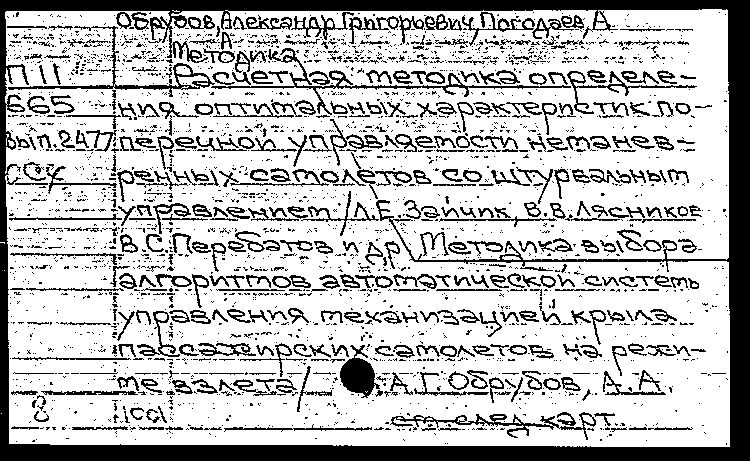 Обрубов, Александр Григорьевич, Погодаев, А
А
Методика
П 11 Расчетная методика определе-
665 ния оптимальных характеристик по-
Вып.2477 перечной управляемости неманев-
ренных самолетов со штурвальным
управлением / Л.Е. Зайчик, В.В. Лясников
В.С. Перебатов и др. Методика выбора
алгоритмов автоматической системы
управления механизацией крыла
пассажирских самолетов на режи-
ме взлета / А.Г. Обрубов, А.А.
8 см след карт.